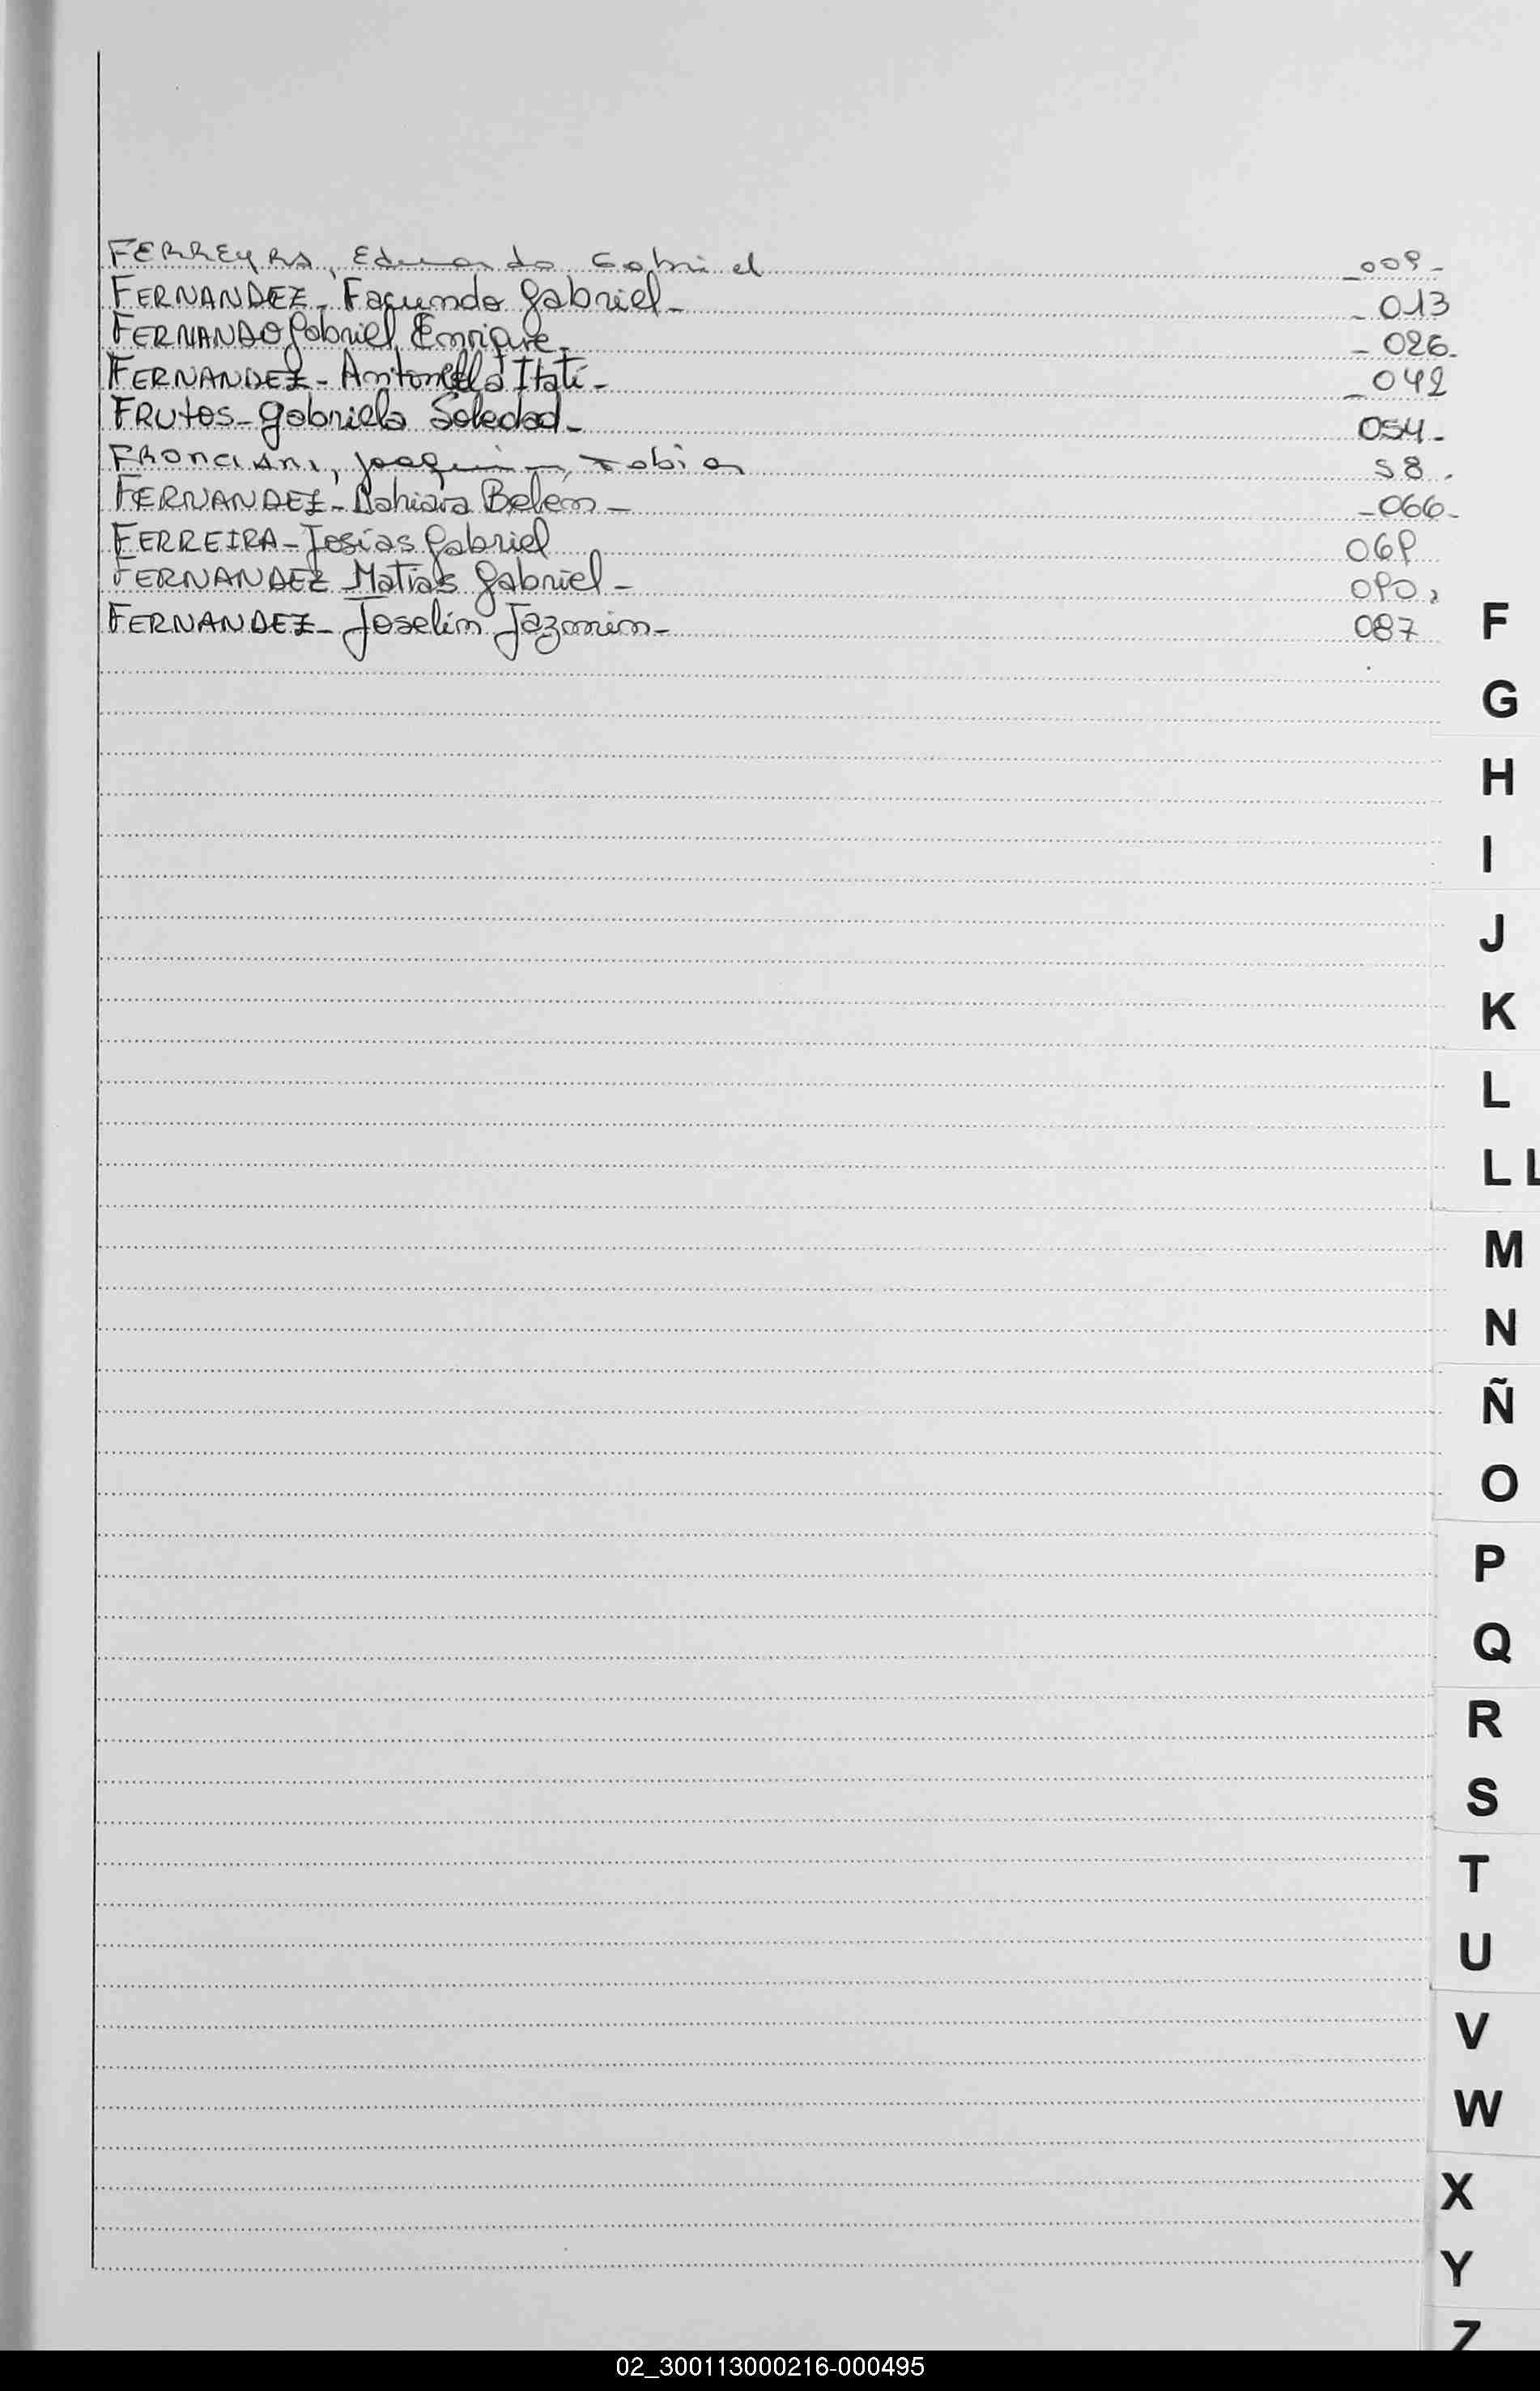 FERREYRA, Eduardo Gabriel _009-
FERNANDEZ - Facundo Gabriel - _ 013
FERNANDO Gabriel Enrique - _ 026.
FERNANDEZ - Antonella Itatí - _042
FRUtos - Gabriela Soledad - 054-
Joaquin, Tobias 58.
FERNANDEZ - Belén - _066-
FERREIRA - Josías Gabriel 069
FERNANDEZ Matias Gabriel -
FERNANDEZ - Joselín Jazmin - 087
F
G
H
I
J
K
L
LL
M
N
Ñ
O
P
Q
R
S
T
U
V
W
X
Y
Z
02_300113000216-000495